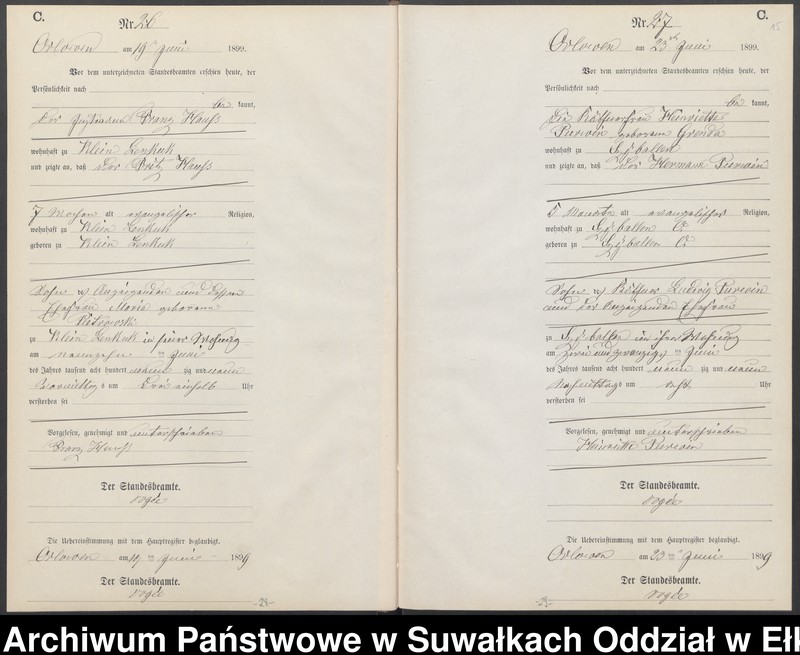 C.
Nr. 26
Orlowen am 19 Juni 1899.
Vor dem unterzeichneten Standesbeamten erschien heute, der
Persönlichkeit nach
be kannt,
der Franz Hauss
wohnhaft zu Klein Lenkuk
und zeigte an, daß der Fritz Hauss
7 Wochen alt evangelischer Religion,
wohnhaft zu Klein Lenkuk
geboren zu Klein Lenkuk
Sohn des Anzeigenden und dessen
Ehefrau Marie geborene
zu Klein Lenkuk in seiner Wohnung
am neunzehn ten Juni
des Jahres tausend acht hundert neun zig und neun
Vormittags um drei einhalb Uhr
verstorben sei
Vorgelesen, genehmigt und unterschrieben
Franz Hauss
Der Standesbeamte.
Vogée
Die Uebereinstimmung mit dem Hauptregister beglaubigt.
Orlowen am 19 ten Juni 1899
Der Standesbeamte.
Vogée
C.
15
Nr. 27
Orlowen am 23 ten Juni 1899.
Vor dem unterzeichneten Standesbeamten erschien heute, der
Persönlichkeit nach
be kannt,
die Käthnerfrau Henriette
Purwin geborene Grenda
wohnhaft zu Sÿballen
und zeigte an, daß der Hermann Purwin
5 Monate alt evangelischer Religion,
wohnhaft zu Sÿballen
geboren zu Sÿballen
Sohn des Käthner Ludwig Purwin
und der Anzeigenden Ehefrau
zu Sÿballen in ihrer Wohnung
am zwei und zwanzigs ten Juni
des Jahres tausend acht hundert neun zig und neun
Nachmittags um acht Uhr
verstorben sei
Vorgelesen, genehmigt und unterschrieben
Henriette Purwin
Der Standesbeamte.
Vogée
Die Uebereinstimmung mit dem Hauptregister beglaubigt.
Orlowen am 23 ten Juni 1899
Der Standesbeamte.
Vogée
Archiwum Państwowe w Suwałkach Oddział w Ełk